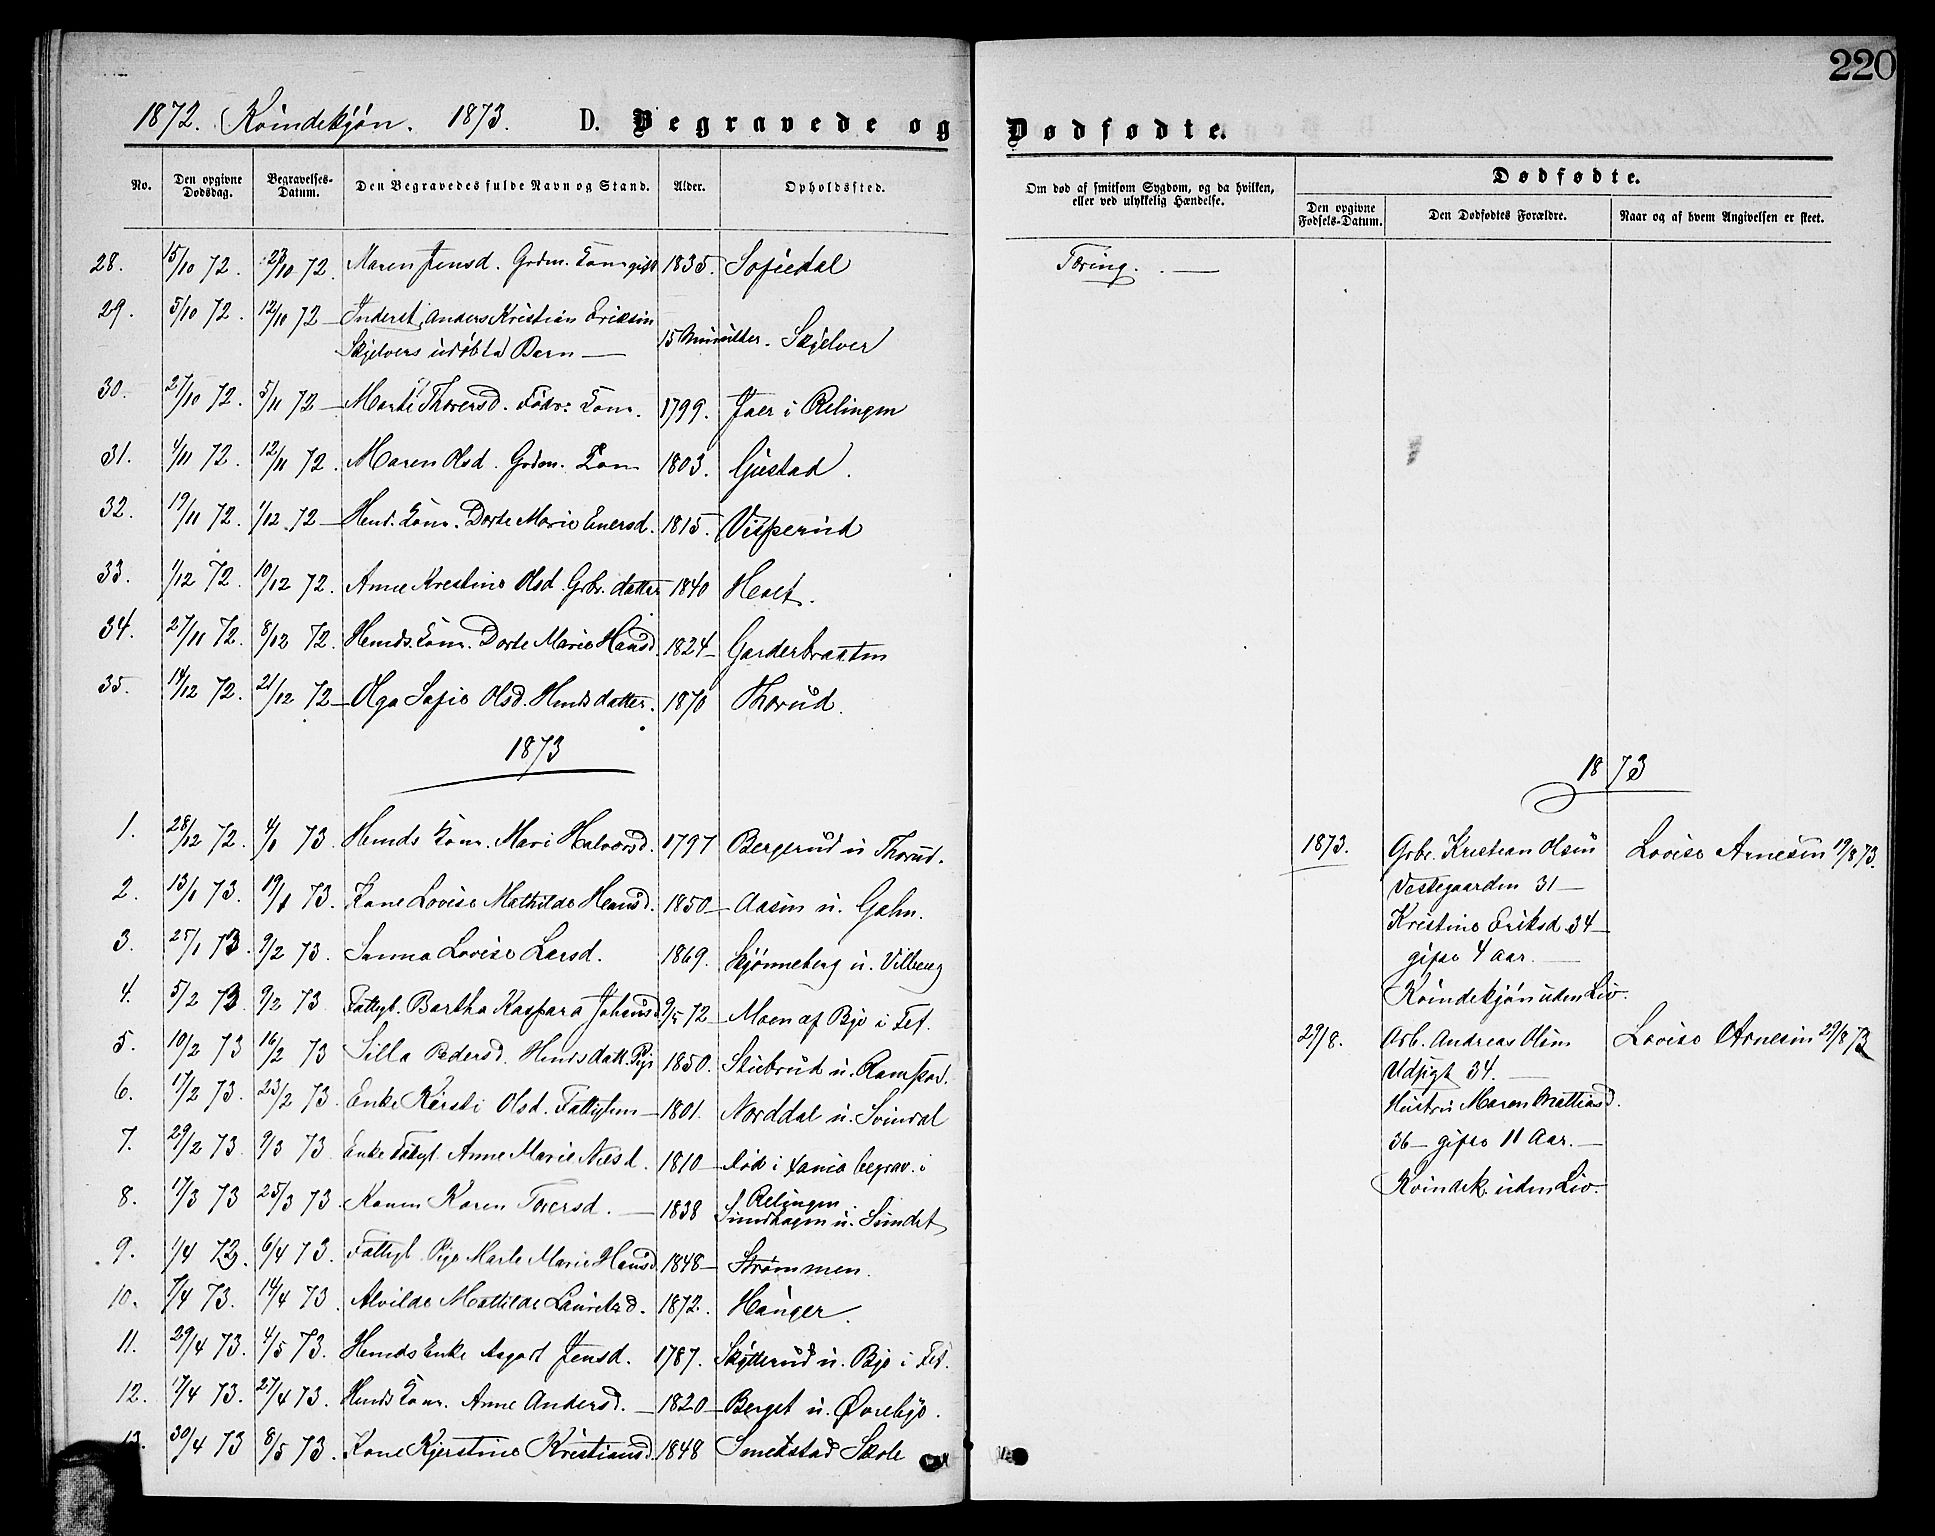 220
1872. Kvindekjøn. 1873. D. Begravede og Dødfødte.
No. Den opgivne Dødsdag. Begravelses-Datum. Den Begravedes fulde Navn og Stand. Alder. Opholdssted.
Om død af smitsom Sygdom, og da hvilken, eller ved ulykkelig Hændelse.
Dødfødte.
Den opgivne Fødsels-Datum. Den Dødfødtes Forældre. Naar og af hvem Angivelsen er skeet.
28. 15/10 72. 23/10 72. Maren Jensd. Grdm. Kone gift 1835. Sofiedal Tæring. —
29. 5/10 72. 12/10 72 — Inderst Anders Kristian Eriksen
Skjelvers udøbta Barn — 15 Minutter. Skjelver
30. 27/10 72. 5/11 72 — Marte Thorersd. Födr: Kone. 1799. Jaer i Relingen
31. 4/11 72. 12/11 72. Maren Olsd. Grdm. Kone 1803. Gustad.
32. 19/11 72. 1/12 72 — Hmd. Kone. Dorte Marie Enersd. 1815. Visperud
33. 1/12 72. 10/12 72. Anne Krestine Olsd. Grbr. datter 1840 Holt.
34. 27/11 72. 8/12 72. Hmds. Kone. Dorte Marie Hansd. 1824 — Garderbraaten
35. 14/12 72. 21/12 72 — Olga Sofie Olsd. Hmds datter. 1870 Thorud.
1873
1. 28/12 72. 4/1 73. Hmds Kone. Mari Halvorsd. 1797 Bergerud u Thorud.
2. 13/1 73. 19/1 73. Kone Lovise Mathilde Hansd. 1850 — Aasen u. Gahn.
3. 25/1 73. 9/2 73. Sanna Lovise Larsd. 1869. Skjønneberg u. Vilberg
4. 5/2 73 9/2 73. Fattigl. Bertha Kaspara Johansd 9/5 72 — Moen af Bjo i Fet.
5. 10/2 73 16/2 73 Silla Pedersd. Hmds datt. Pige 1850. Stubrud u. Ramstad.
6. 17/2 73. 23/2 73. Enke Kirsti Olsd. Fattiglem — 1801. Norddal u. Svindal
7. 29/2 73. 9/3 73 Enke Fattigl. Anne Marie Nilsd. 1810 — död i Xania begrav. i
Relingen.
8. 17/3 73 25/3 73 Konen Karen Torersd. — 1838 Sundhagen u. Sundet
9. 1/4 73. 6/4 73. Fattigl. Pige Marte Marie Hansd 1848 — Strömmen.
10. 7/4 73. 14/4 73. Alvilde Mattilde Lauritzd. 1872. Hauger.
11. 29/4 73. 4/5 73. Hmds Enke Aagot Jensd. 1787. Skytterud u. Bjo i Fet.
12. 17/4 73. 27/4 73. Hmds Kone. Anne Andersd. — 1820 — Berget u. Øvrebyo.
13. 30/4 73 8/5 73. Kone Kjerstine Kristiansd. 1848 Smekstad Skole
1873
1873. Grbr. Kristian Olsen Lovise Arnesen 19/8 73.
Vestegaarden 31 —
Kristine Eriksd 34 —
gifte 4 Aar. —
Kvindekjön uden Liv.
29/8. Arb. Andreas Olsen Lovise Arnesen 29/8 73
Udsigt 34. —
Hustru Maren Mattiasd.
36 — gifte 11 Aar. —
Kvindek. uden Liv.